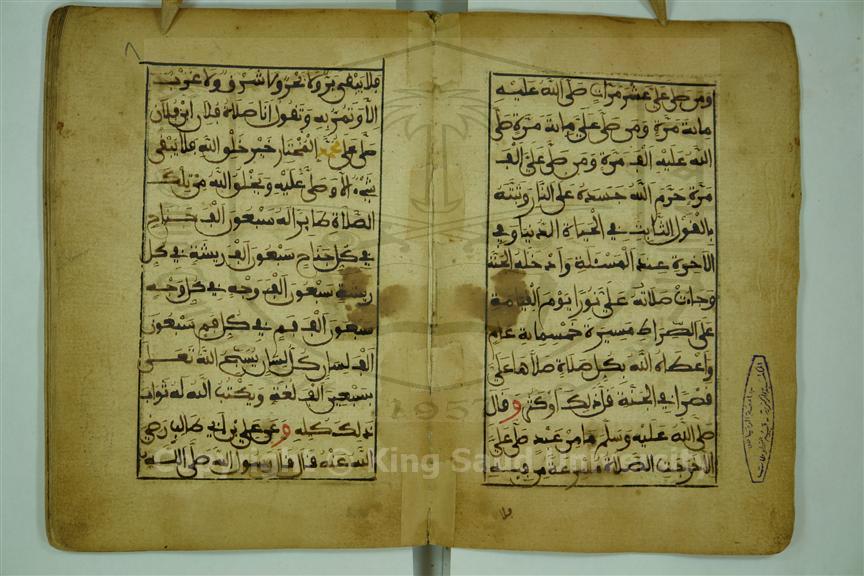 ومن صلى علي عشر مرات صلى الله عليه
مائة مرة ومن صلى علي مائة مرة صلى
الله عليه ألف مرة ومن صلى علي ألف
مرة حرم الله جسده على النار وثبته
بالقول الثابت في الحياة الدنيا وفي
الآخرة عند المسئلة وأدخله الجنة
وجاءت صلاته علي نورا يوم القيامة
على الصراط مسيرة خمسمائة عام
وأعطاه الله بكل صلاة صلاها علي
قصرا في الجنة قل ذلك أو كثر وقال
صلى الله عليه وسلم ما من عبد صلى علي
إلا خرجت الصلاة مسرعة من فيه
فلا
٨
فلا يبقى بر ولا بحر ولا شرق ولا غرب
إلا وتمر به وتقول أنا صلاة فلان ابن فلان
صلى على محمد المختار خير خلق الله فلا يبقى
شيء إلا وصلى عليه ويخلق الله من تلك
الصلاة طائرا له سبعون ألف جناح
في كل جناح سبعون ألف ريشة في كل
ريشة سبعون ألف وجه في كل وجه
سبعون ألف فم في كل فم سبعون
ألف لسان كل لسان يسبح الله تعالى
بسبعين ألف لغة ويكتب الله له ثواب
ذلك كله وعن علي بن أبي طالب رضي
الله عنه قال قال رسول الله صلى الله
Copyright © King Saud University
1957